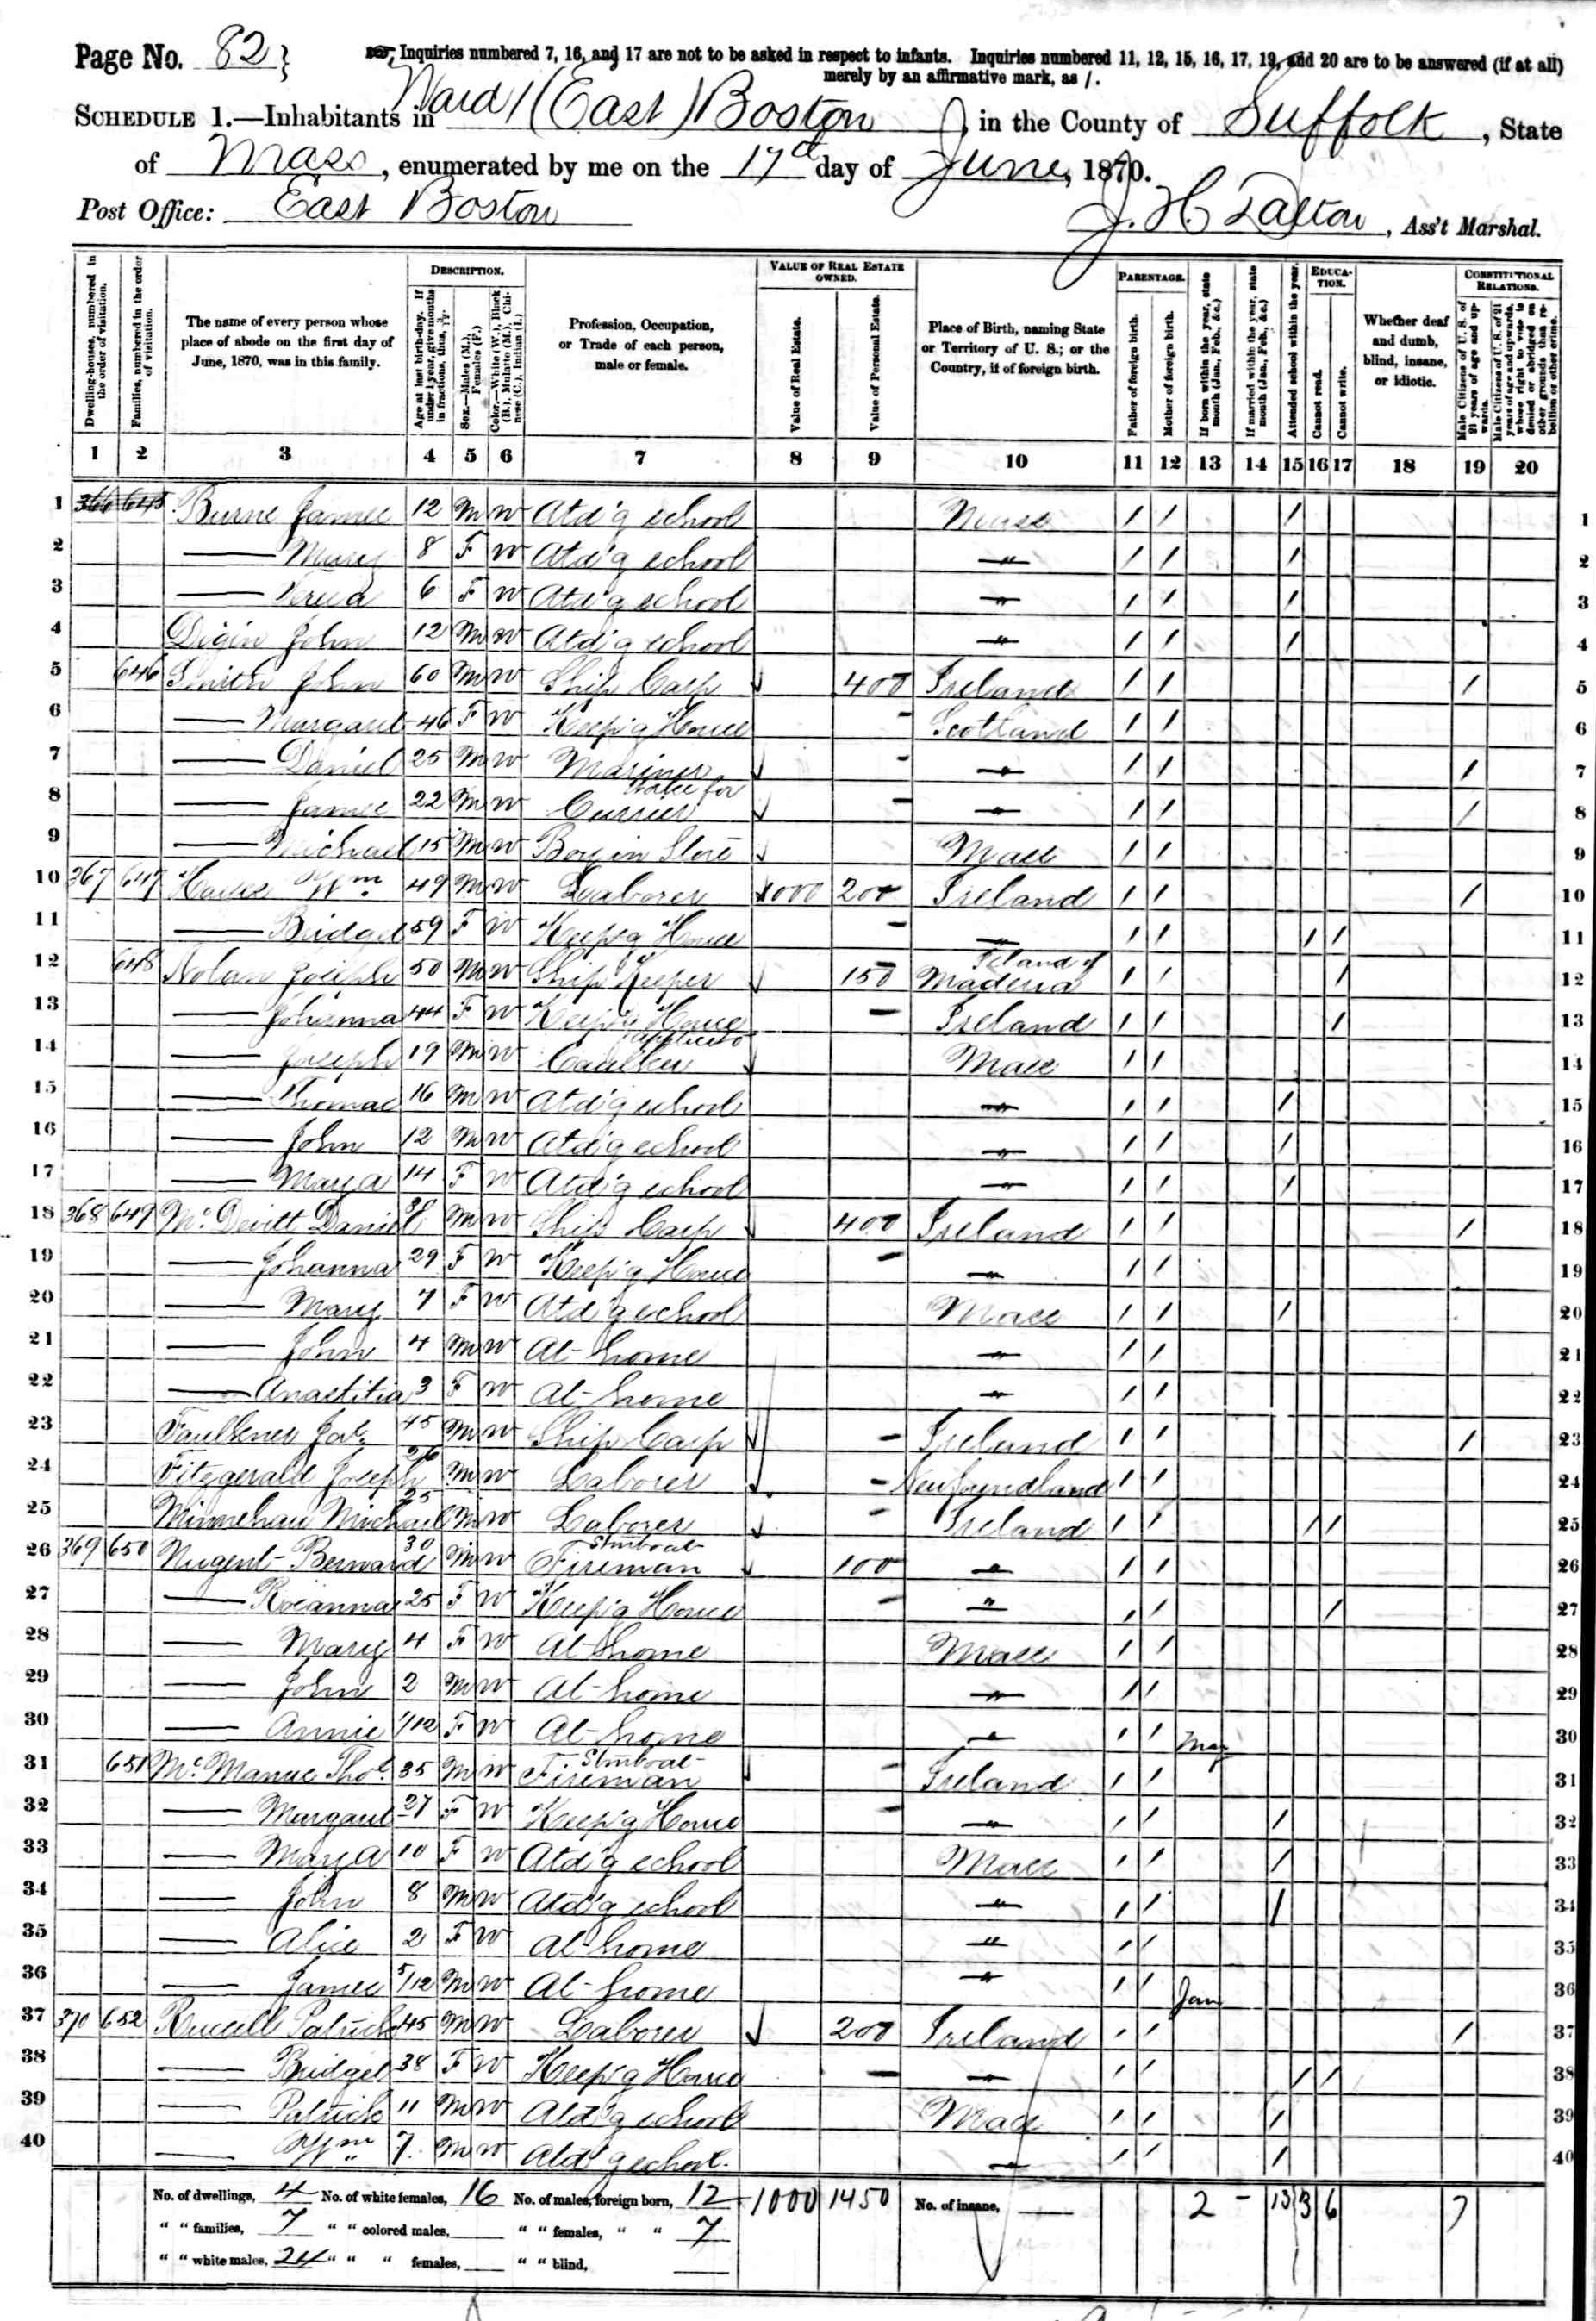 Page No. 82 Inquiries numbered 7, 16, and 17 are not to be asked in respect to infants. Inquiries numbered 11, 12, 15, 16, 17, 19, and 20 are to be answered (if at all)
merely by an affirmative mark, as /.
SCHEDULE 1.—Inhabitants in Ward 1 (East) Boston, in the County of Suffolk, State
of Mass, enumerated by me on the 17d day of June, 1870.
Post Office: East Boston J. H Dalton, Ass't Marshal.
Dwelling-houses, numbered in the order of visitation.
Families, numbered in the order of visitation.
The name of every person whose place of abode on the first day of June, 1870, was in this family.
DESCRIPTION.
Age at last birth-day. If under 1 year, give months in fractions, thus, 3/12.
Sex.—Males (M.), Females (F.)
Color.—White (W.), Black (B.), Mulatto (M.), Chinese (C.), Indian (I.)
Profession, Occupation, or Trade of each person, male or female.
VALUE OF REAL ESTATE OWNED.
Value of Real Estate.
Value of Personal Estate.
Place of Birth, naming State or Territory of U. S.; or the Country, if of foreign birth.
PARENTAGE.
Father of foreign birth.
Mother of foreign birth.
If born within the year, state month (Jan., Feb., &c.)
If married within the year, state month (Jan., Feb., &c.)
Attended school within the year.
EDUCATION.
Cannot read.
Cannot write.
Whether deaf and dumb, blind, insane, or idiotic.
CONSTITUTIONAL RELATIONS.
Male Citizens of U. S. of 21 years of age and upwards.
Male Citizens of U. S. of 21 years of age and upwards, whose right to vote is denied or abridged on other grounds than rebellion or other crime.
1 2 3 4 5 6 7 8 9 10 11 12 13 14 15 16 17 18 19 20
1 366 645 Burns James 12 M W Atd'g school Mass / / / 1
2 — Mary 8 F W Atd'g school " / / / 2
3 — 6 F W Atd'g school " / / / 3
4 Digin John 12 M W Atd'g school " / / / 4
5 646 Smith John 60 M W Ship Carp 400 Ireland / / / 5
6 — Margaret 46 F W Keep'g House - Scotland / / 6
7 — Daniel 25 M W Mariner - " / / / 7
8 — James 22 M W Currier - " / / / 8
9 — Michael 15 M W Boy in Store Mass / / 9
10 367 647 Hayes Wm 49 M W Laborer 1000 200 Ireland / / / 10
11 — Bridget 59 F W Keep'g House - " / / / / 11
12 648 Nolan Joseph 50 M W Ship Keeper 150 Island of Maderia / / / 12
13 — Johanna 44 F W Keep'g House - Ireland / / / 13
14 — Joseph 19 M W Caulker Mass / / 14
15 — Thomas 16 M W Atd'g school " / / / 15
16 — John 12 M W Atd'g school " / / / 16
17 — Mary A 14 F W Atd'g school " / / / 17
18 368 649 McDevitt Daniel 38 M W Ship Carp 400 Ireland / / / 18
19 — Johanna 29 F W Keep'g House - " / / 19
20 — Mary 7 F W Atd'g school Mass / / / 20
21 — John 4 M W At-home " / / 21
22 — Anastitia 3 F W At-home " / / 22
23 Faulkner Jas. 45 M W Ship Carp - Ireland / / / 23
24 Fitzgerald Joseph 26 M W Laborer - Newfoundland / / 24
25 Minnehan Michael 25 M W Laborer - Ireland / / / / 25
26 369 650 Nugent Bernard 30 M W Stmboat Fireman 100 " / / 26
27 — Roeanna 25 F W Keep'g House - " / / / 27
28 — Mary 4 F W At home Mass / / 28
29 — John 2 M W At-home " / / 29
30 — Annie 1/12 F W At-home " / / May 30
31 651 McManus Thos. 35 M W Stmboat Fireman - Ireland / / 31
32 — Margaret 27 F W Keep'g House - " / / / 32
33 — Mary A 10 F W Atd'g school Mass / / / 33
34 — John 8 M W Atd'g school " / / / 34
35 — Alice 2 F W At home " / / 35
36 — James 5/12 M W At-home " / / Jan 36
37 370 652 Russell Patrick 45 M W Laborer 200 Ireland / / / 37
38 — Bridget 38 F W Keep'g House - " / / / / 38
39 — Patrick 11 M W Atd'g school Mass / / / 39
40 — Wm 7 M W Atd'g school. " / / / 40
No. of dwellings, 4 No. of white females, 16 No. of males, foreign born, 12 1000 1450 No. of insane, — 2 - 13 3 6 7
" " families, 7 " " colored males, — " " females, " " 7
" " white males, 24 " " " females, — " " blind, —